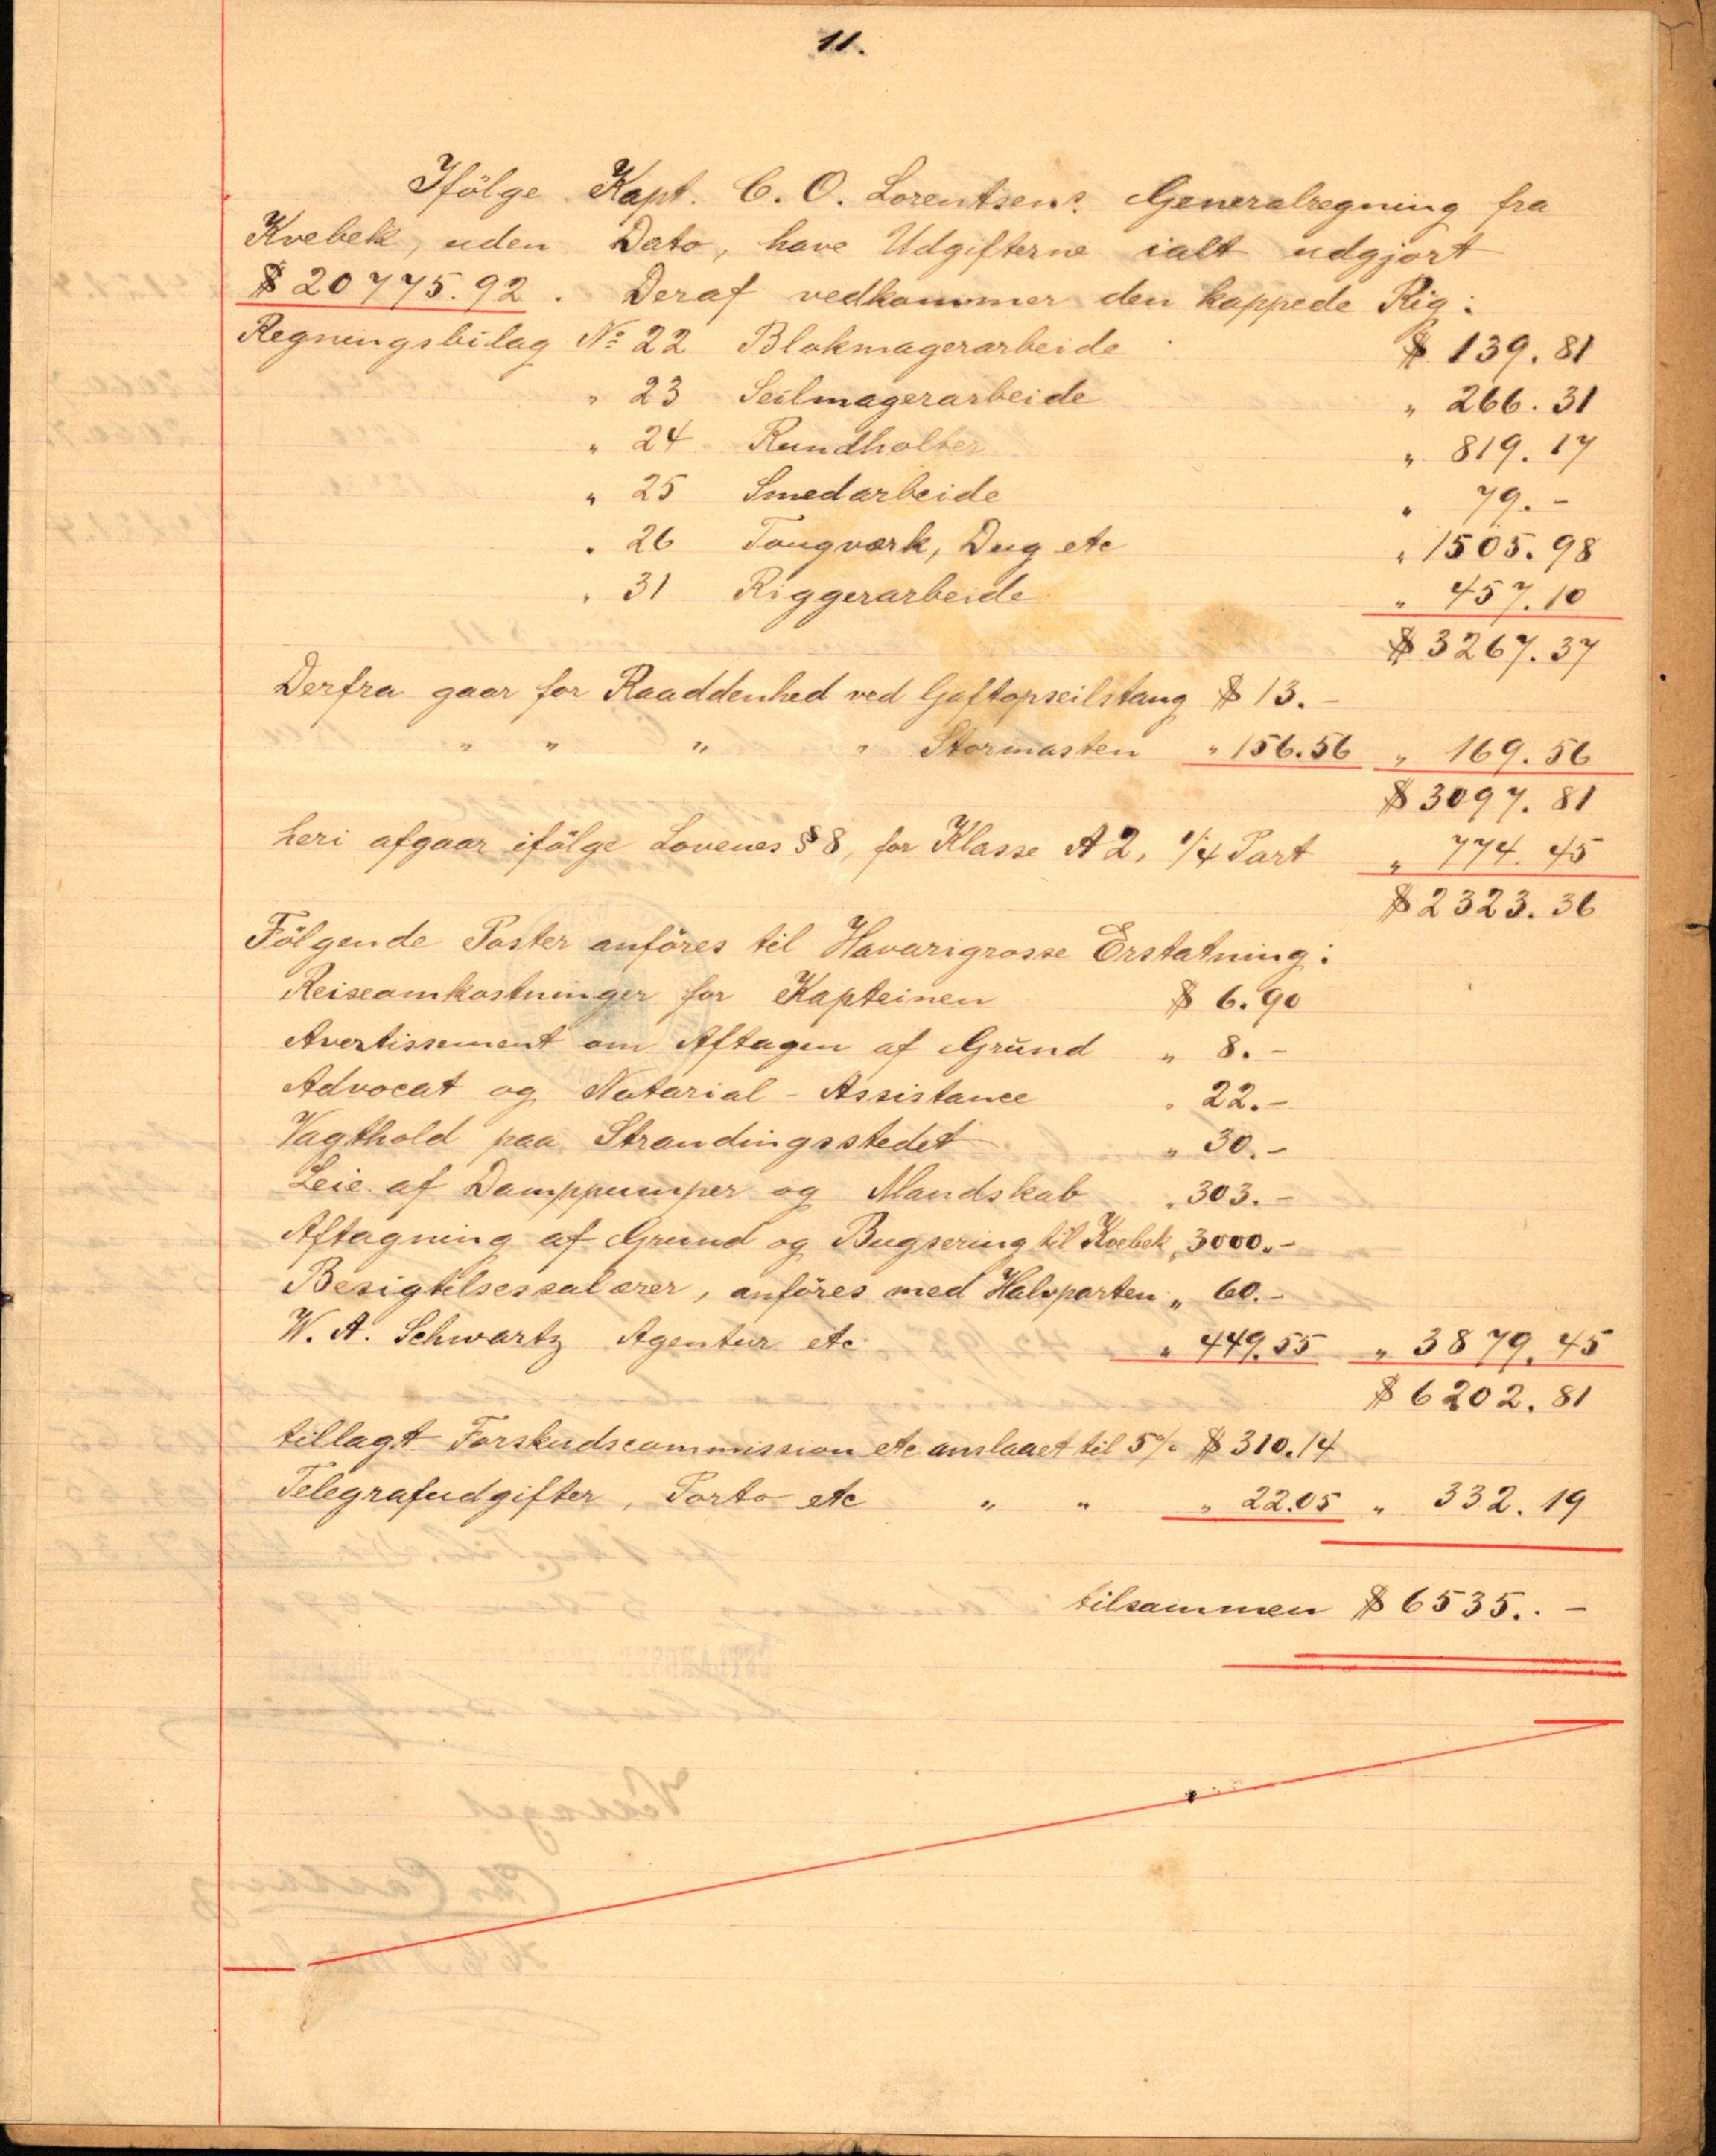 11.
Ifölge Kapt. C. O. Lorentsens Generalregning fra
Kvebek, uden Dato, have Udgifterne ialt udgjort
$ 20775.92. Deraf vedkommer den kappede Rig:
Regningsbilag No 22 Blokmagerarbeide $ 139.81
" 23 Seilmagerarbeide " 266.31
" 24 Rundholter " 819.17
" 25 Smedarbeide " 79.-
" 26 Tougværk, Dug etc " 1505.98
" 31 Riggerarbeide " 457.10
$ 3267.37
Derfra gaar for Raaddenhed ved Gaftopseilstang $ 13.-
" " " " Stormasten " 156.56 " 169.56
$ 3097.81
heri afgaar ifölge Lovenes § 8, for Klasse A 2, 1/4 Part " 774.45
$ 2323.36
Fölgende Poster anföres til Havarigrosse Erstatning:
Reiseomkostninger for Kapteinen $ 6.90
Avertissement om Aftagen af Grund " 8.-
Advocat og Notarial-Assistance " 22.-
Vagthold paa Strandingsstedet " 30.-
Leie af Damppumper og Mandskab " 303.-
Aftagning af Grund og Bugsering til Kvebek " 3000.-
Besigtelsessalærer, anföres med Halvparten " 60.-
W. A. Schwartz Agentur etc " 449.55 " 3879.45
$ 6202.81
tillagt Forskudscommission etc anslaaet til 5% $ 310.14
Telegrafudgifter, Porto etc " " " 22.05 " 332.19
tilsammen $ 6535.-